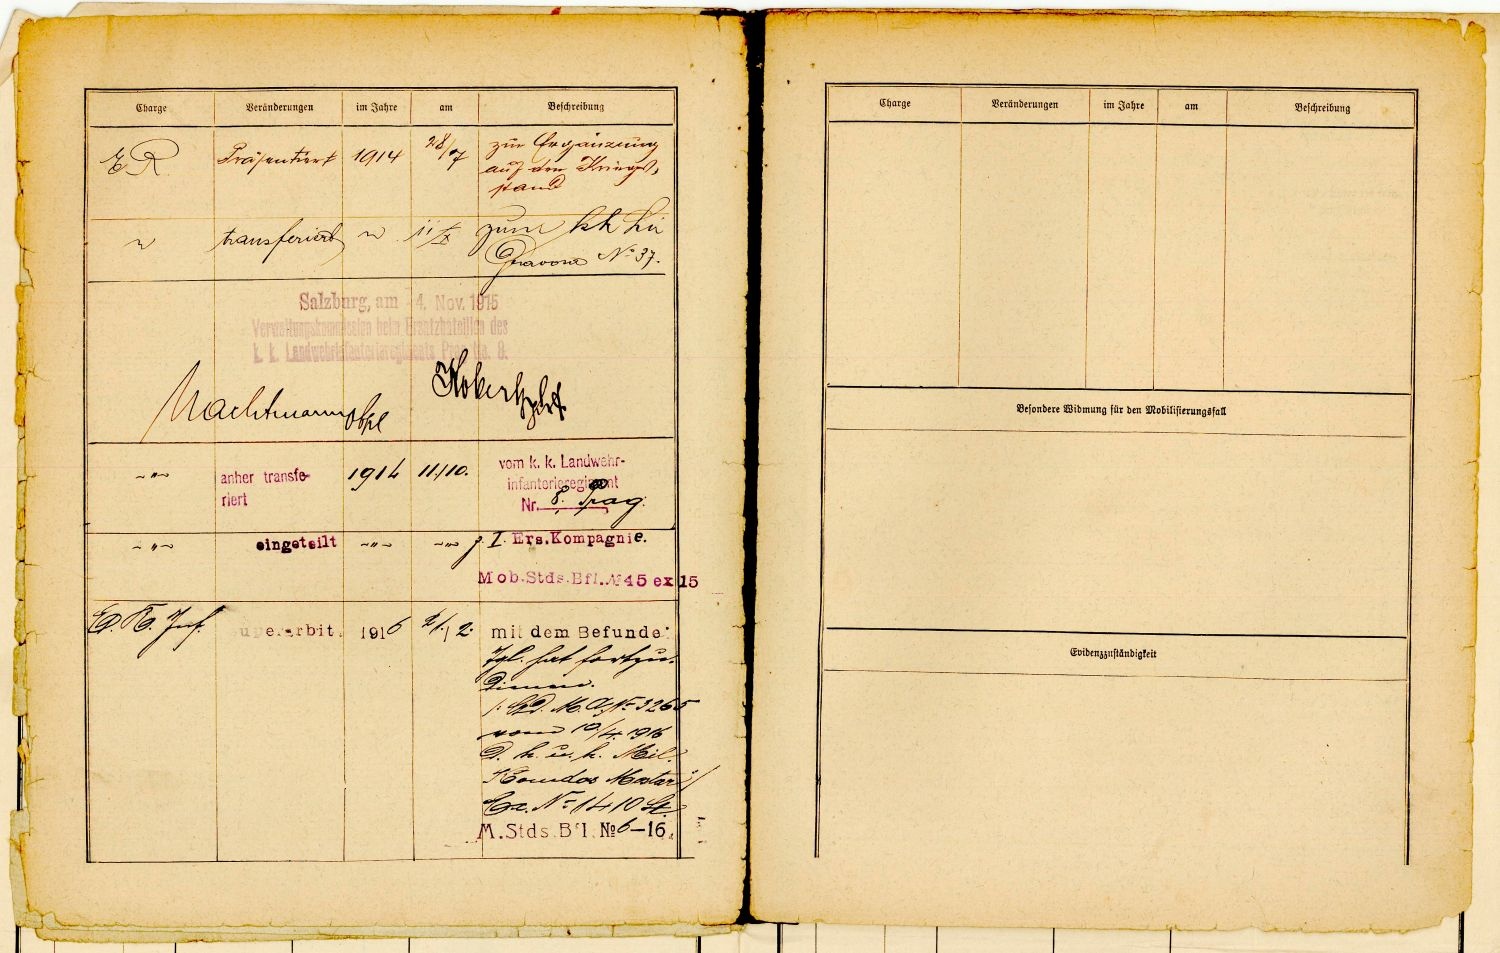 Charge Veränderungen im Jahre am Beschreibung
ER Präsentiert 1914 28/7 zur Ergänzung
auf den Kriegs-
stand
" transferiert " 11/X zum kk Lir
Gravosa No 37.
Salzburg, am 4. Nov. 1915
Verwaltungskommission beim Ersatzbataillon des
k. k. Landwehrinfanterieregiments Prag No. 8.
Nachtmann
-"- anher transfe- 1914 11./10. vom k. k. Landwehr-
riert infanterieregiment
Nr. 8. Prag.
-"- eingeteilt -"- -"- z. I. Ers.Kompagnie.
Mob.Stds.Bfl.№45 ex 15
E. R. Inf. superarbit. 1916 21./2. mit dem Befunde:
Igl. hat fortzu-
dienen.
M. A. No 3265
vom 10/4. 1916
D. k. u. k. Mil.
Komdos Mostar/
No 1410
M.Stds.Bfl.№6-16.
Charge Veränderungen im Jahre am Beschreibung
Besondere Widmung für den Mobilisierungsfall
Evidenzzuständigkeit